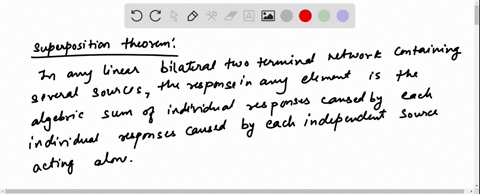 Superposition theorem:
In any linear bilateral two terminal network containing
several sources, the response in any element is the
algebric sum of individual responses caused by each
individual responses caused by each independent source
acting alon.